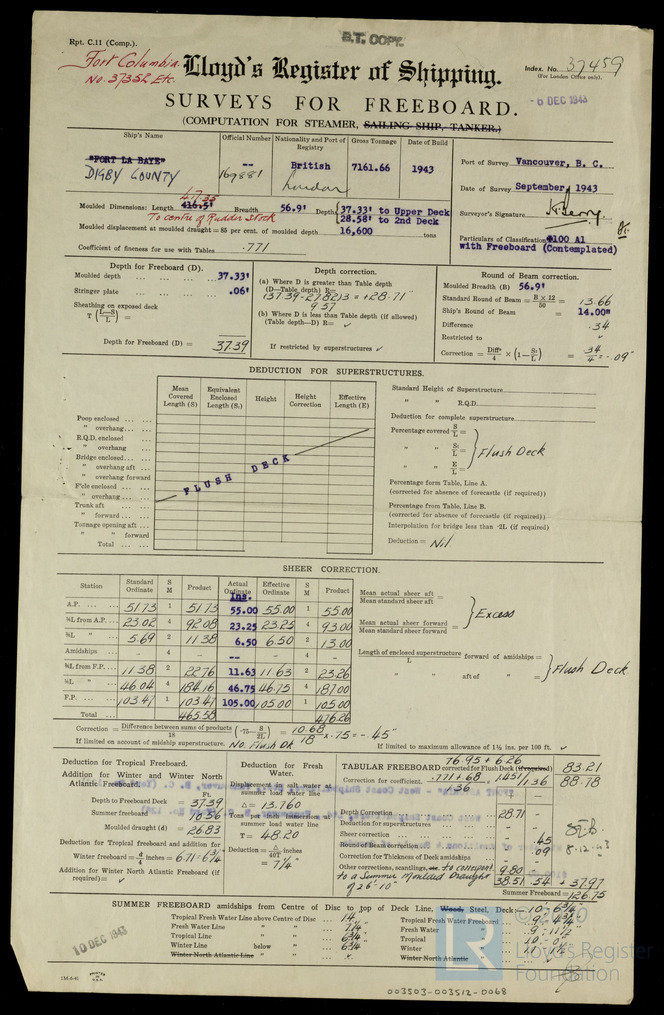 B.T. COPY.
Rpt. C.11 (Comp.).
Fort Columbia
No. 37352 Etc.
Lloyd's Register of Shipping.
Index. No. 37459
(For London Office only).
SURVEYS FOR FREEBOARD.
- 6 DEC 1943
(COMPUTATION FOR STEAMER, SAILING SHIP, TANKER.)
Ship's Name
Official Number
Nationality and Port of Registry
Gross Tonnage
Date of Build
"FORT LA BAYE"
DIGBY COUNTY
--
169881
British
London
7161.66
1943
Port of Survey Vancouver, B. C.
Date of Survey September, 1943
Surveyor's Signature
Particulars of Classification +100 A1
with Freeboard (Contemplated)
Moulded Dimensions: Length 416.5' 417.33 Breadth 56.9' Depth 37.33' to Upper Deck
To centre of Rudder Stock
28.58' to 2nd Deck
Moulded displacement at moulded draught = 85 per cent. of moulded depth 16,600 tons
Coefficient of fineness for use with Tables .771
Depth for Freeboard (D).
Moulded depth ... 37.33'
Stringer plate ... .06'
Sheathing on exposed deck
T (L—S/L) =
Depth for Freeboard (D) = 37.39
Depth correction.
(a) Where D is greater than Table depth
(D—Table depth) R=
(37.39-27.82)3 = +28.71"
9.57
(b) Where D is less than Table depth (if allowed)
(Table depth—D) R= ✓
If restricted by superstructures ✓
Round of Beam correction.
Moulded Breadth (B) 56.9'
Standard Round of Beam = B × 12/50 = 13.66
Ship's Round of Beam = 14.00"
Difference .34
Restricted to
Correction = Diff/4 × (1—S₁/L) = .34/4 = -.09"
DEDUCTION FOR SUPERSTRUCTURES.
Mean Covered Length (S)
Equivalent Enclosed Length (S₁)
Height
Height Correction
Effective Length (E)
Poop enclosed
" overhang
R.Q.D. enclosed
" overhang
Bridge enclosed
" overhang aft
" overhang forward
F'cle enclosed
" overhang
Trunk aft
" forward
Tonnage opening aft
" " forward
Total
FLUSH DECK
Standard Height of Superstructure
" " R.Q.D.
Deduction for complete superstructure
Percentage covered S/L =
" " S₁/L =
" " E/L =
Flush Deck
Percentage from Table, Line A.
(corrected for absence of forecastle (if required))
Percentage from Table, Line B.
(corrected for absence of forecastle (if required))
Interpolation for bridge less than ·2L (if required)
Deduction = Nil
SHEER CORRECTION.
Station
Standard Ordinate
S M
Product
Actual Ordinate
Ins.
Effective Ordinate
S M
Product
A.P. 51.73 1 51.73 55.00 55.00 1 55.00
⅙L from A.P. 23.02 4 92.08 23.25 23.25 4 93.00
⅓L " 5.69 2 11.38 6.50 6.50 2 13.00
Amidships - 4 - -- - 4 -
⅓L from F.P. 11.38 2 22.76 11.63 11.63 2 23.26
⅙L " 46.04 4 184.16 46.75 46.75 4 187.00
F.P. 103.47 1 103.47 105.00 105.00 1 105.00
Total 465.58 476.26
Mean actual sheer aft
Mean standard sheer aft =
Mean actual sheer forward
Mean standard sheer forward =
Excess
Length of enclosed superstructure/L forward of amidships =
" " aft of " =
Flush Deck
Correction = Difference between sums of products/18 (·75— S/2L) = 10.68/18 × .75 = -.45"
If limited on account of midship superstructure. No. Flush Dk
If limited to maximum allowance of 1½ ins. per 100 ft. ✓
Deduction for Tropical Freeboard.
Addition for Winter and Winter North Atlantic Freeboard.
Ft.
Depth to Freeboard Deck = 37.39
Summer freeboard = 10.56
Moulded draught (d) = 26.83
Deduction for Tropical freeboard and addition for
Winter freeboard = d/4 inches = 6.71 = 6¾"
Addition for Winter North Atlantic Freeboard (if required) = ✓
Deduction for Fresh Water.
Displacement in salt water at summer load water line
Δ = 13,760
Tons per inch immersion at summer load water line
T = 48.20
Deduction = Δ/40T inches
= 7¼"
TABULAR FREEBOARD corrected for Flush Deck (if required)
76.95 + 6.26
83.21
Correction for coefficient. .771+.68/1.36 = 1.451/1.36 88.78
Depth Correction 28.71 -
Deduction for superstructures - -
Sheer correction - .45
Round of Beam correction - .09
Correction for Thickness of Deck amidships - -
Other corrections, scantlings, etc. to correspond 9.80 -
to a Summer Moulded Draught
of 26'-10"
38.51 .54 + 37.97
Summer Freeboard = 126.75
8-12-43
SUMMER FREEBOARD amidships from Centre of Disc to top of Deck Line, Wood, Steel, Deck:— 10'-6¾"
Tropical Fresh Water Line above Centre of Disc 14
Fresh Water Line " " 7¼"
Tropical Line " " 6¾"
Winter Line below " 6¾
Winter North Atlantic Line " " x
Tropical Fresh Water Freeboard 9'-4¾"
Fresh Water " 9'-11½"
Tropical " 10'-0"
Winter "
Winter North Atlantic "
10 DEC 1943
1M-6-41
PRINTED IN U.S.A.
© 2020
LR
Lloyd's Register
Foundation
003503-003512-0068